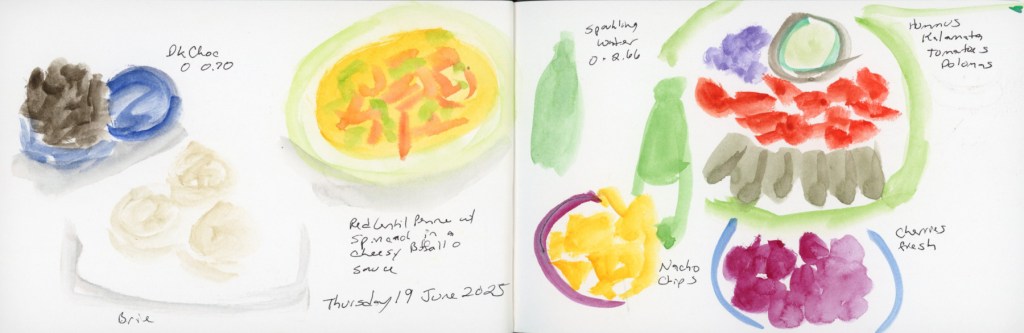 Dk Choc
0 0.70
Red Lentil Penne w/
Spinach in a
cheesy Buffalo
sauce
Thursday 19 June 2025
Brie
Sparkling
water
0.266
Hummus
Kalamata
Tomatoes
Dolmas
Nacho
Chips
Cherries
fresh